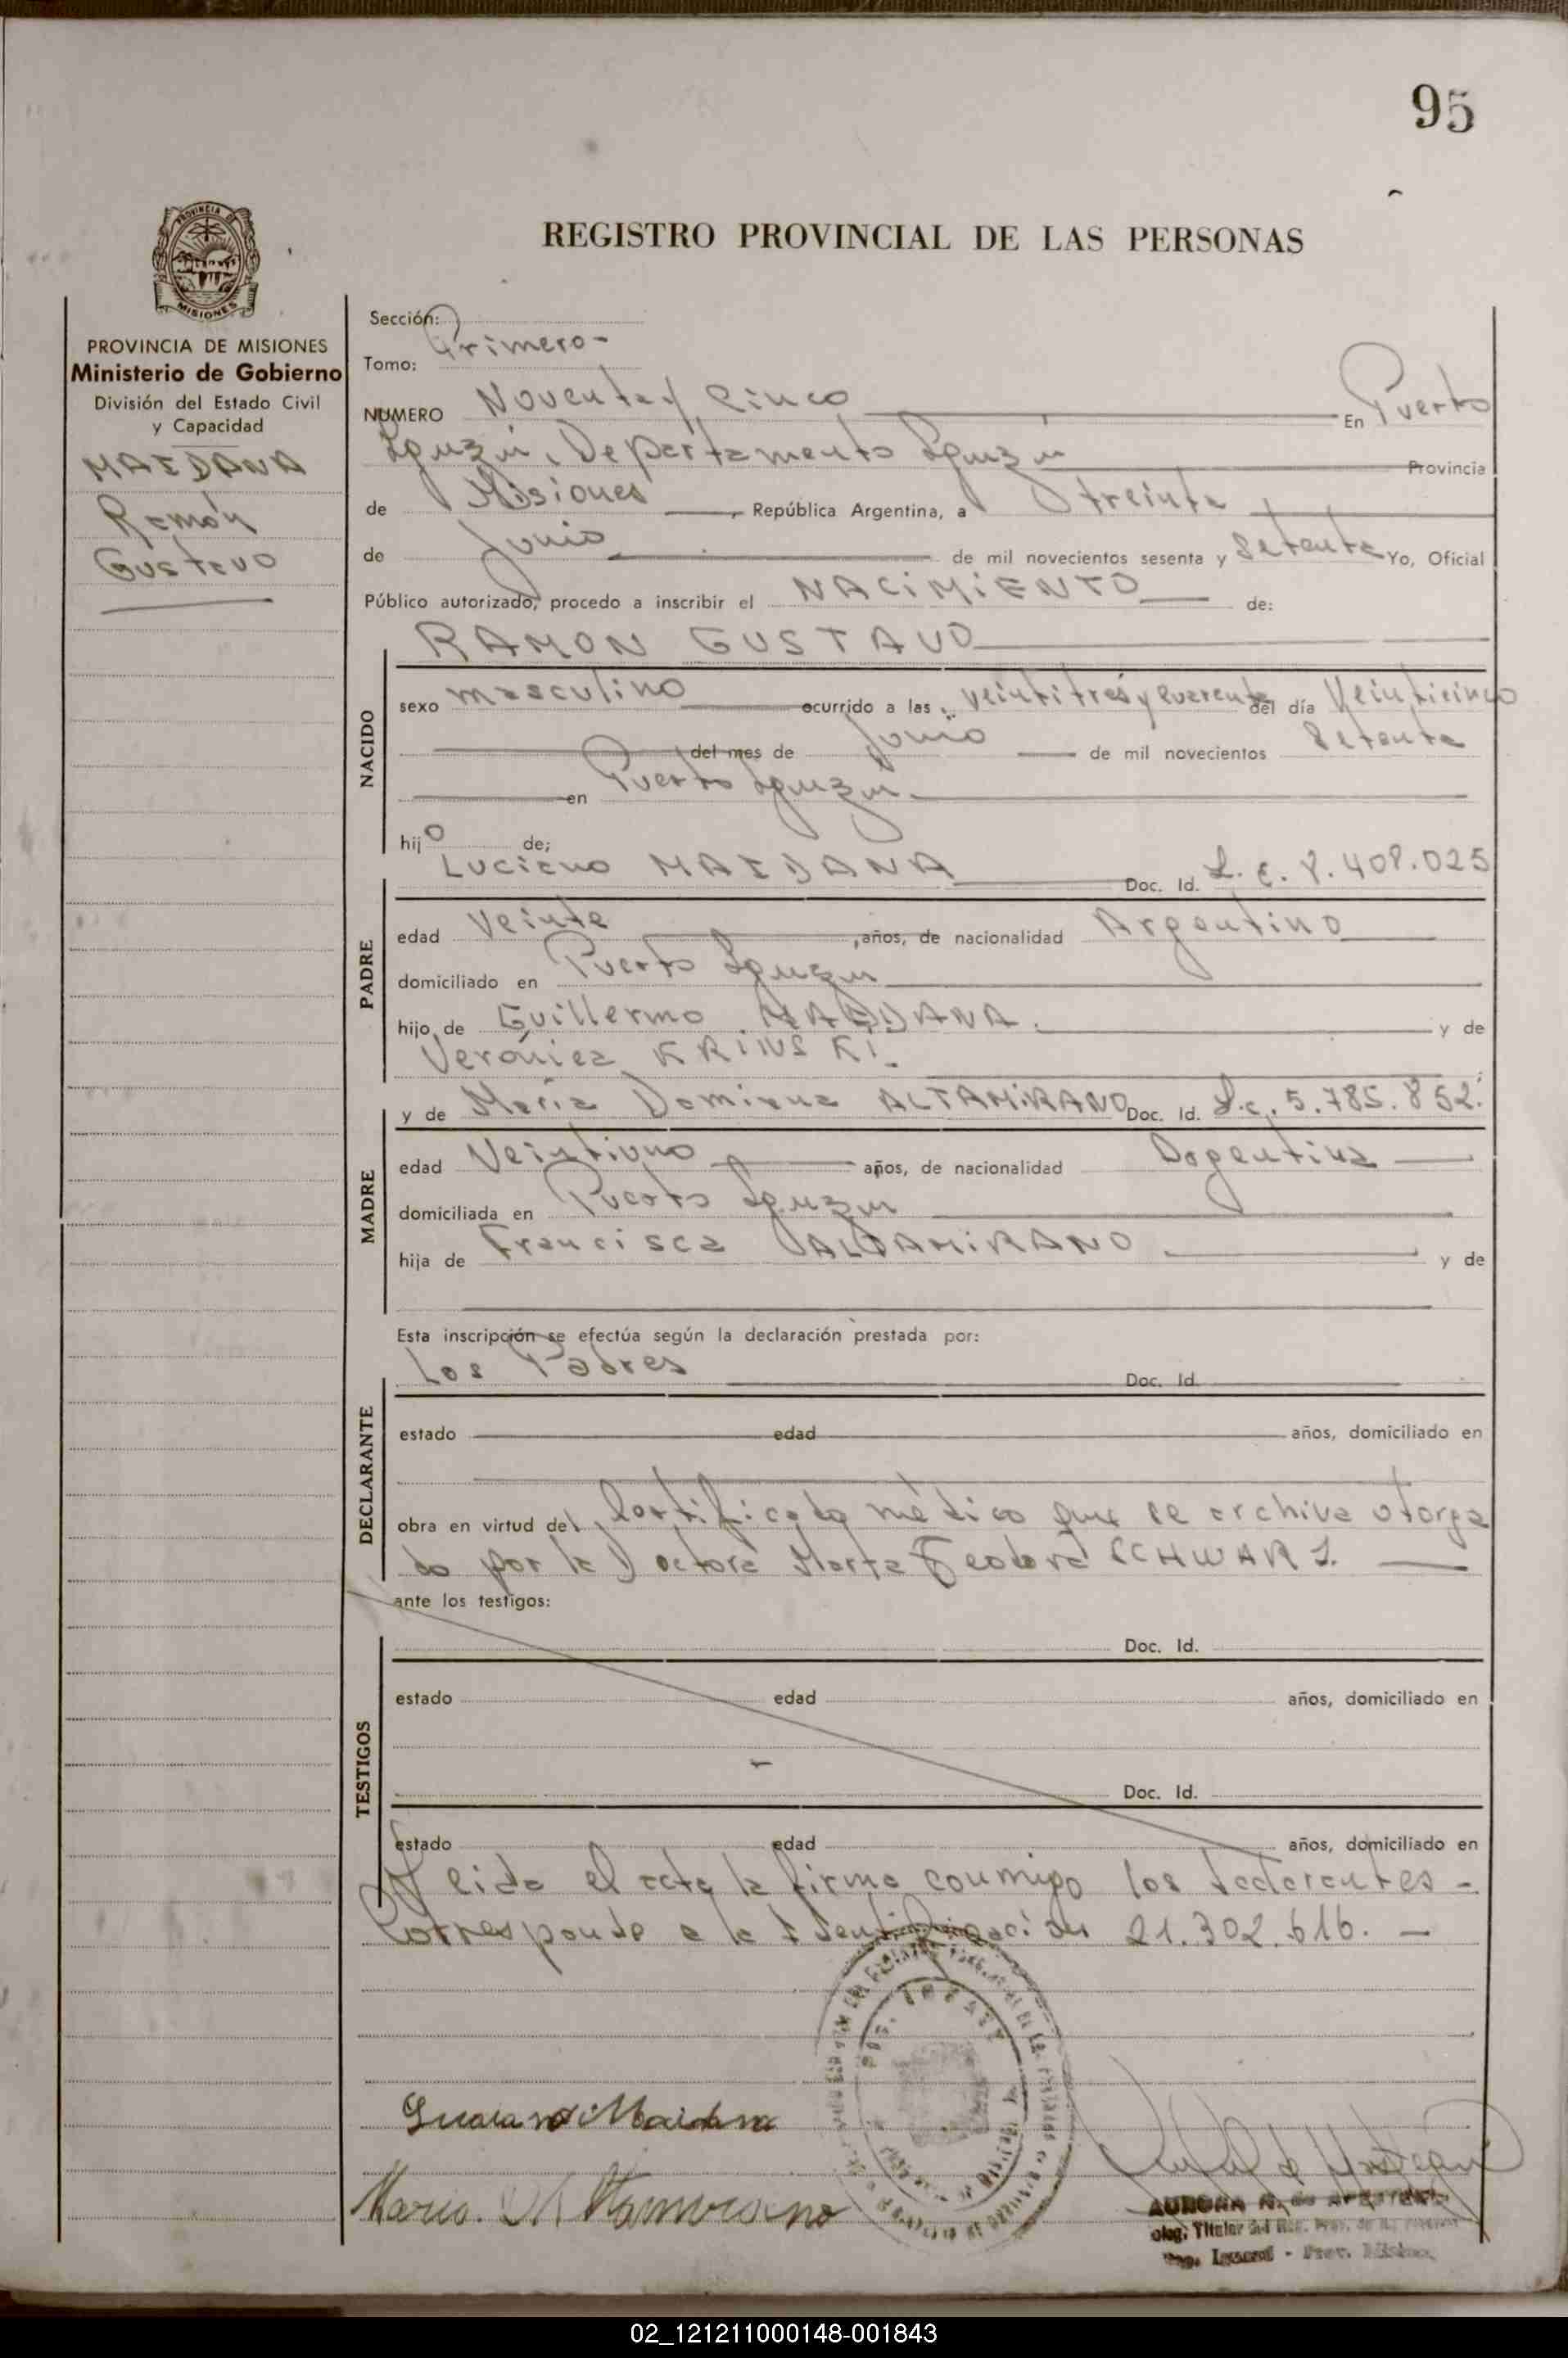 95
REGISTRO PROVINCIAL DE LAS PERSONAS
PROVINCIA DE MISIONES
Ministerio de Gobierno
División del Estado Civil
y Capacidad
MAIDANA
Ramón
Gustavo
Sección:
Tomo: Primero-
NUMERO Noventa y Cinco En Puerto
Iguazú, Departamento Iguazú Provincia
de Misiones, República Argentina, a treinta
de Junio de mil novecientos sesenta y Setenta Yo, Oficial
Público autorizado, procedo a inscribir el NACIMIENTO de:
RAMON GUSTAVO
NACIDO
sexo masculino ocurrido a las veintitres y cuarenta del día Veinticinco
del mes de Junio de mil novecientos Setenta
en Puerto Iguazú.
hijo de;
PADRE
Luciano MAIDANA Doc. Id. L. E. 8.408.025
edad Veinte ,años, de nacionalidad Argentino
domiciliado en Puerto Iguazú
hijo de Guillermo MAIDANA y de
Verónica KRINSKI.
MADRE
y de María Damiana ALTAMIRANO Doc. Id. L.c. 5.785.852.
edad Veintiuno años, de nacionalidad Argentina
domiciliada en Puerto Iguazú
hija de Francisca ALTAMIRANO y de
Esta inscripción se efectúa según la declaración prestada por:
DECLARANTE
Los Padres Doc. Id.
estado edad años, domiciliado en
obra en virtud del Certificado médico que se archiva otorga
do por la Doctora Marta Teodora SCHWARZ.
ante los testigos:
TESTIGOS
Doc. Id.
estado edad años, domiciliado en
Doc. Id.
estado edad años, domiciliado en
Leida el acta la firma conmigo los declarantes -
Corresponde a la Identificación 21.302.616. -
Luciano Maidana
Maria. D. Altamirano
02_121211000148-001843